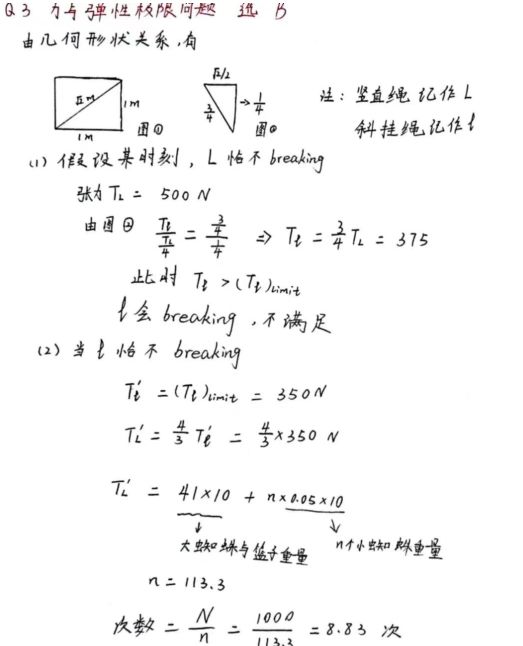 Q3 力与弹性极限问题 选 B
由几何形状关系，有
√2m 1m 1m 图①
√2/2 3/4 → 1/4 图②
注：竖直绳记作 L
斜挂绳记作 l
(1) 假设某时刻，L 恰不 breaking
张力 T_L = 500 N
由图② T_l / (T_L/4) = (3/4) / (1/4) ⇒ T_l = 3/4 T_L = 375
此时 T_l > (T_l)limit
l 会 breaking，不满足
(2) 当 l 恰不 breaking
T_l' = (T_l)limit = 350N
T_L' = 4/3 T_l' = 4/3 × 350 N
T_L' = 41×10 + n×0.05×10
大蜘蛛与篮子重量 n个小蜘蛛重量
n = 113.3
次数 = N/n = 1000/113.3 = 8.83 次